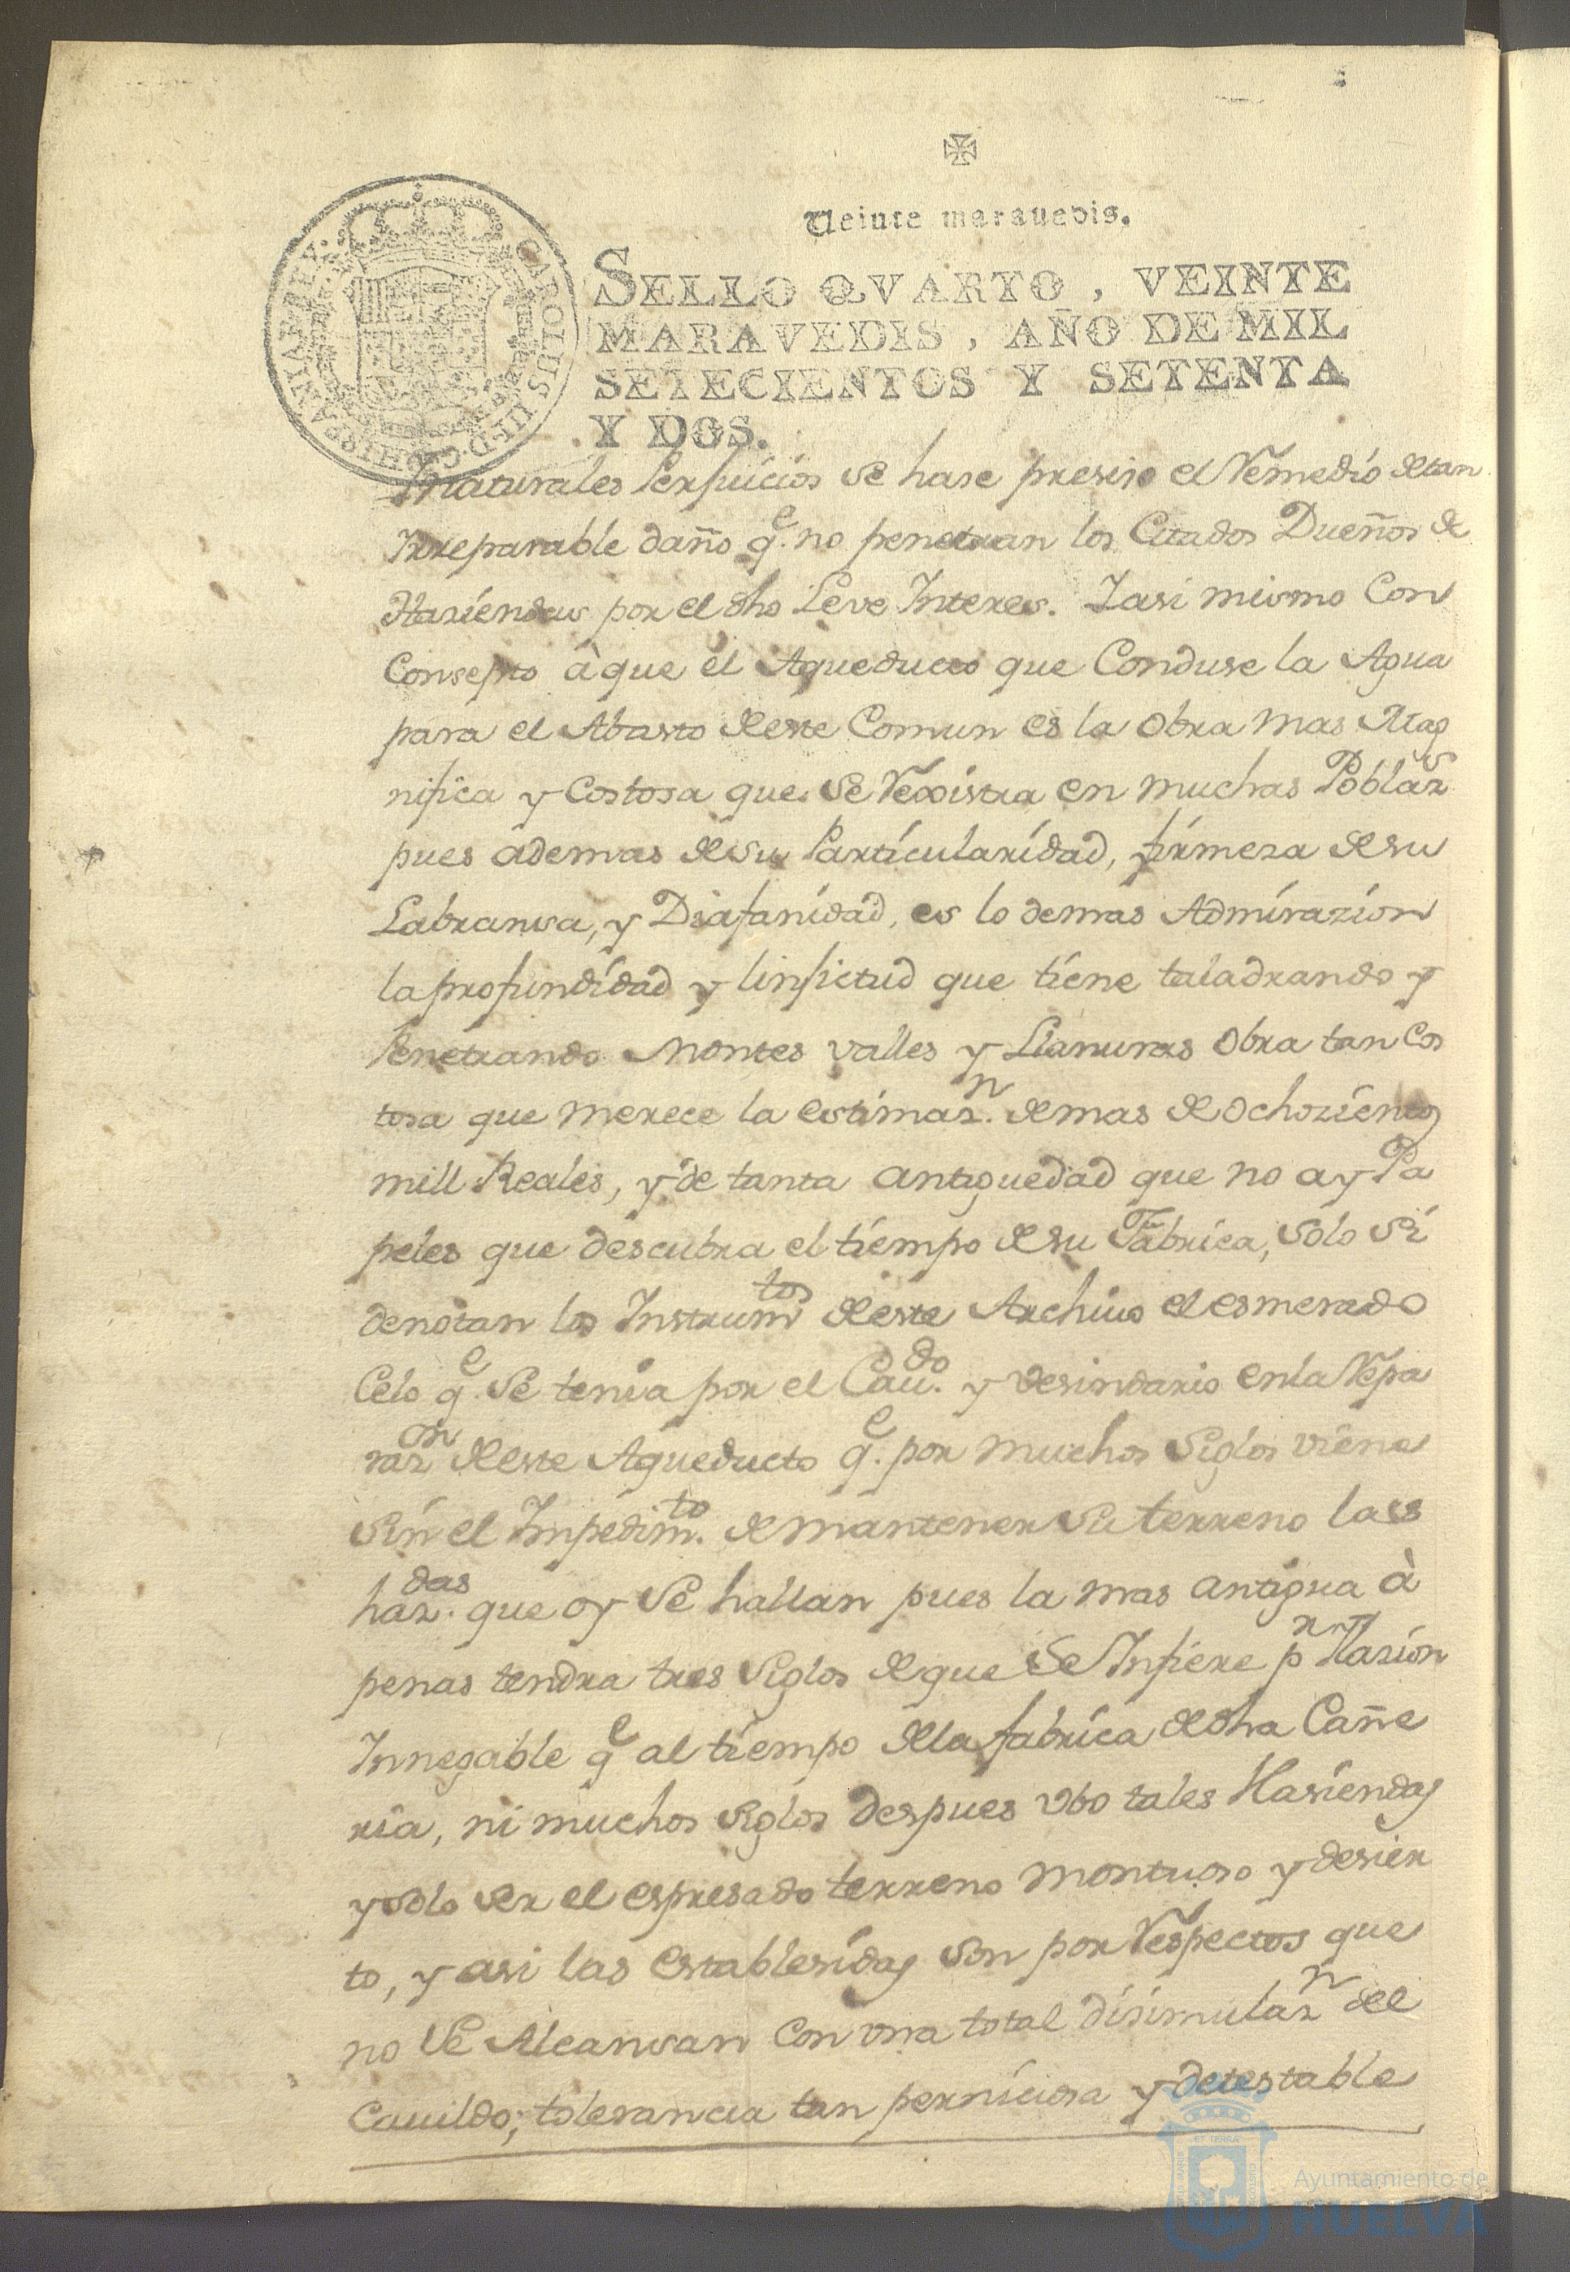 Veinte maravedis.
SELLO QVARTO, VEINTE
MARAVEDIS, AÑO DE MIL
SETECIENTOS Y SETENTA
Y DOS.
CAROLUS III D G HISPANIAR REX
naturales Perjuicios se hase presiso el Remedio de tan
Irreparable daño q.e no penetran los Citados Dueños de
Haziendas por el dho Leve Interes. Iasi mismo Con
Consepto à que el Aqueducto que Conduse la Agua
para el Abasto deste Comun es la obra mas Mag
nifica y Costosa que se Rexistra en muchas Poblaz.s
pues ademas de su Particularidad, firmeza de su
Labransa, y Diafanidad, es lo demas Admirazion
la profundidad y linfictud que tiene taladrando y
Penetrando Montes valles y Llanuras Obra tan Cos
tosa que merece la estimaz.n de mas de ochozientos
mill Reales, y de tanta antiguedad que no ay Pa
peles que descubra el tiempo de su Fabrica, solo si
denotan los Instrumtos deste Archivo el esmerado
Celo q.e se tenia por el Cau.do y vesindario en la Repa
razon deste Aqueducto q.e por muchos Siglos viene
sin el Impedim.to de mantener su terreno las
haz.das que oy se hallan pues la mas antigua à
penas tendra tres Siglos de que se Infiere pr Razion
Innegable qe al tiempo de la fabrica de dha Cañe
ria, ni muchos siglos despues vbo tales Hasiendas
y solo ser el espresado terreno montuoso y desier
to, y asi las establesidas son por Respectos que
no se Alcansan con vna total disimulazn del
Cauildo; tolerancia tan perniciosa y detestable
Ayuntamiento de
HUELVA